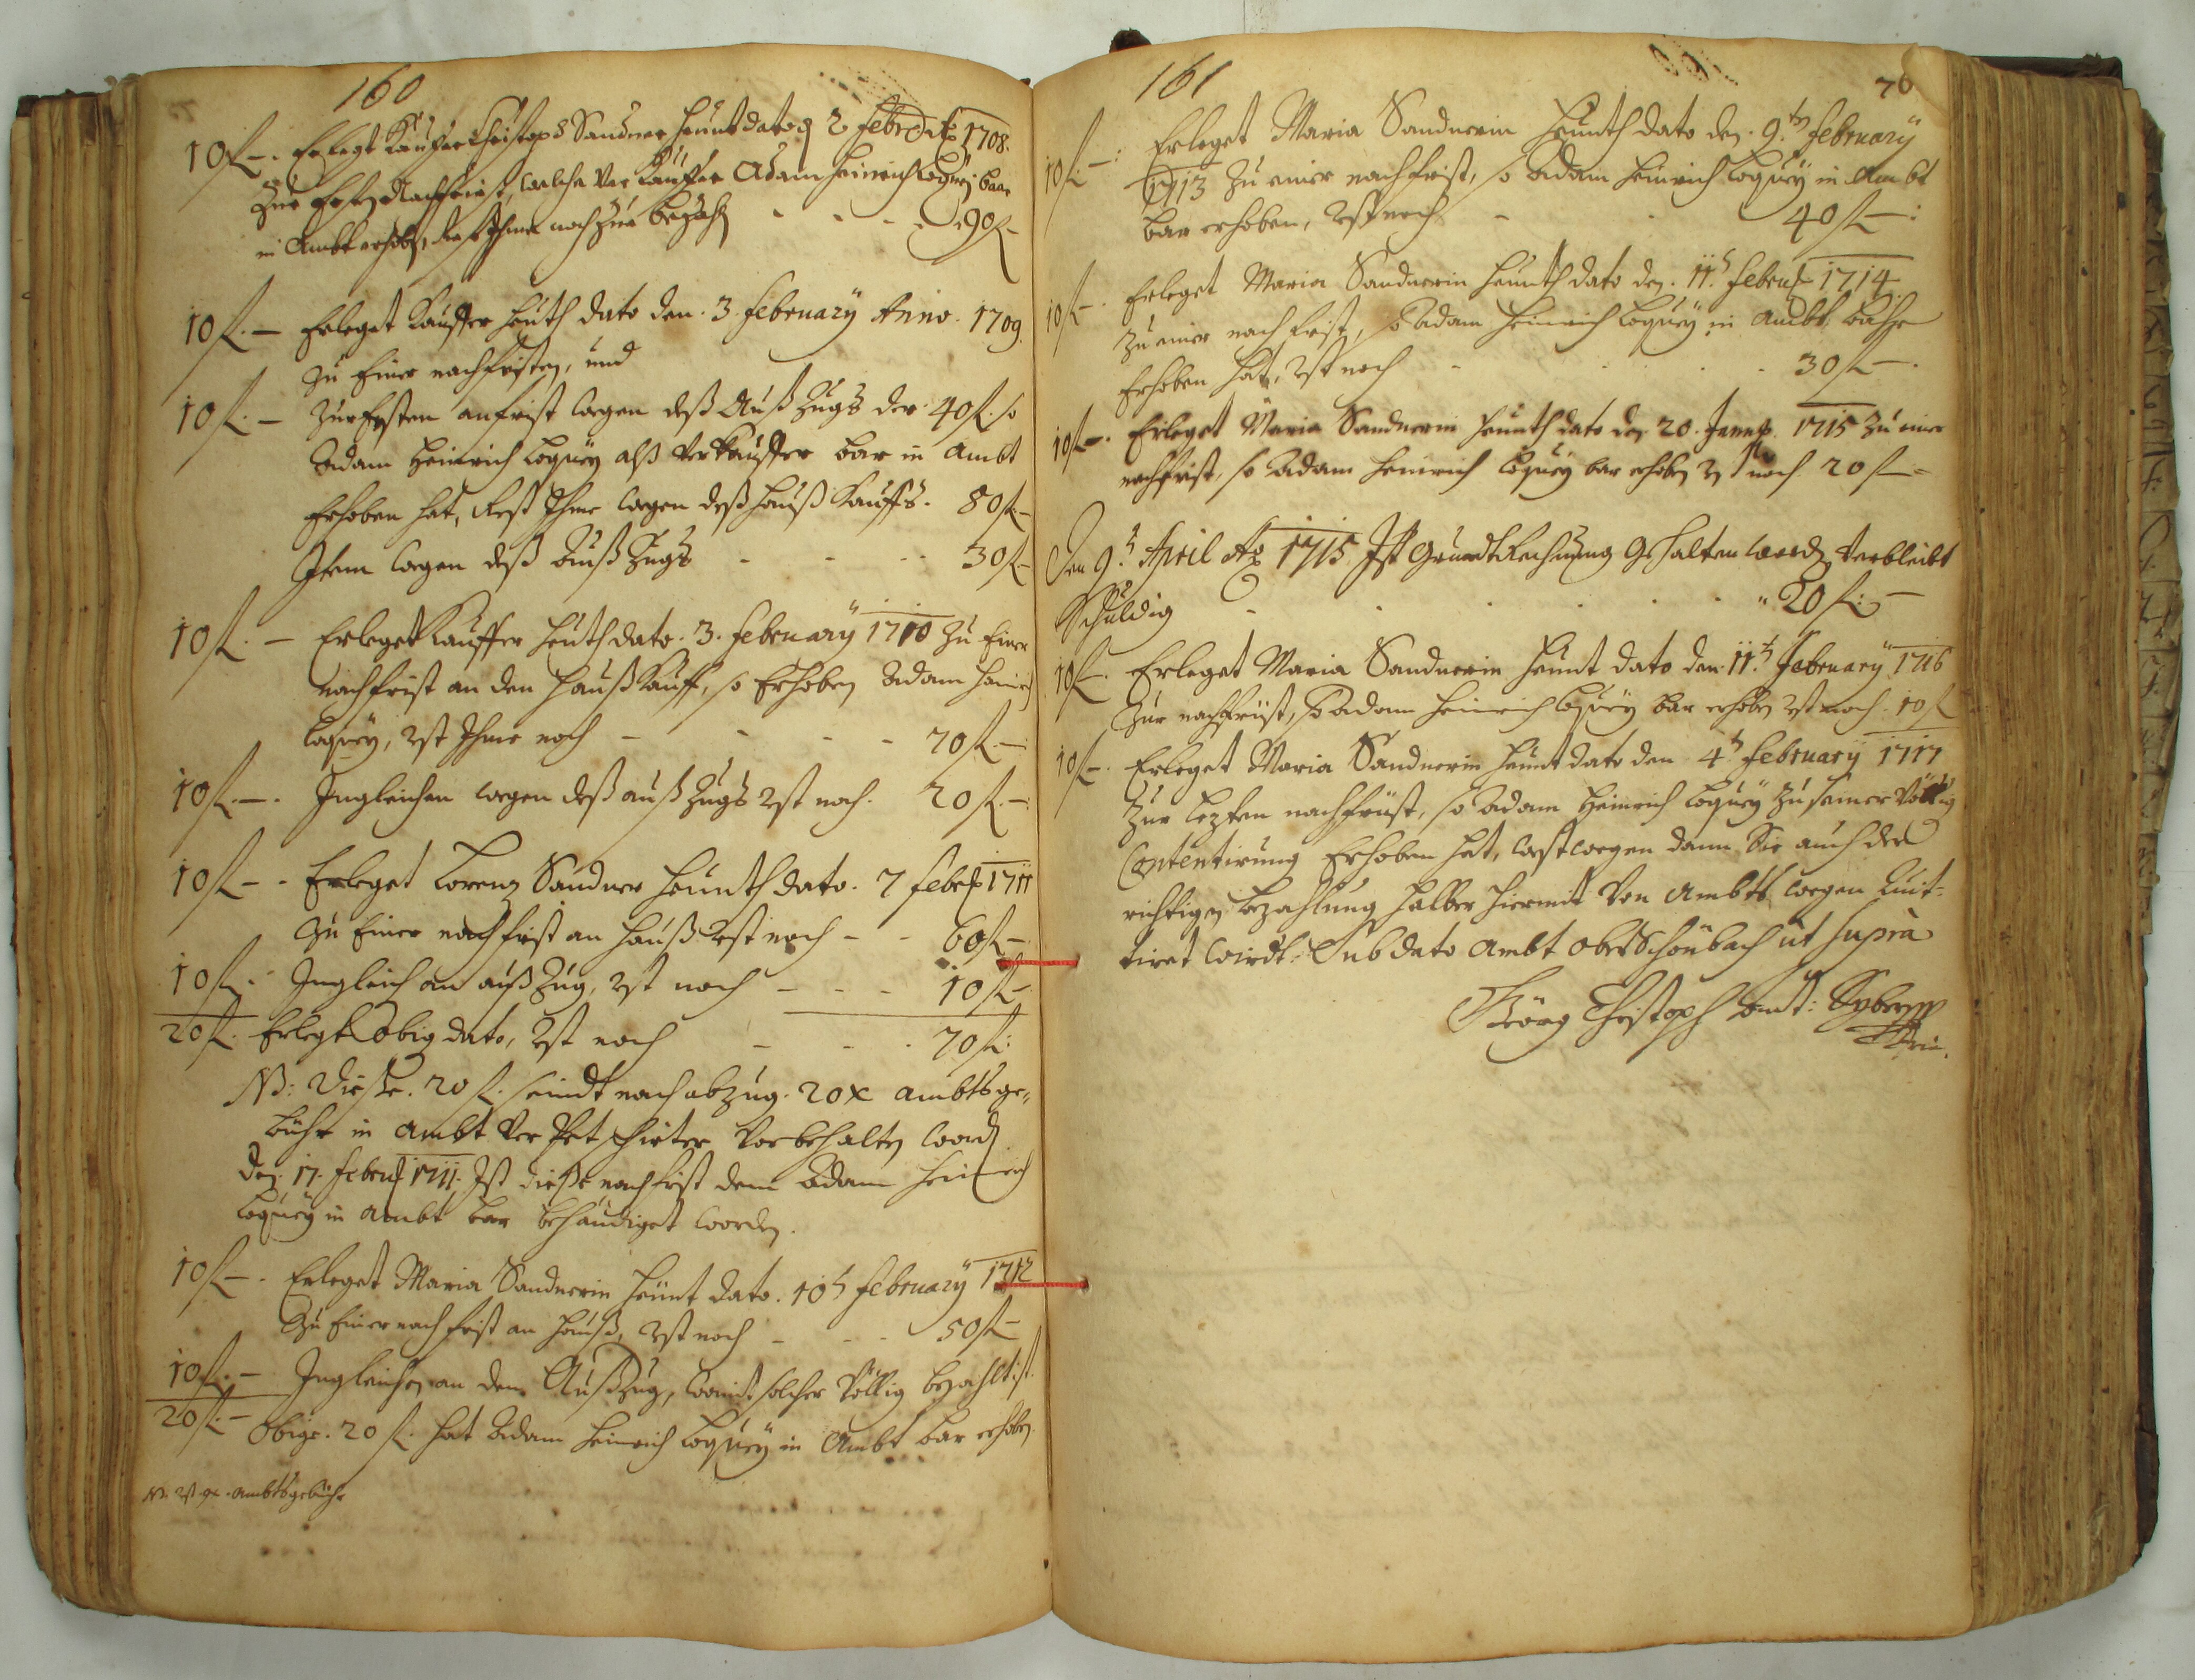 160
10 f –. Erlegt Kauffer Christoph Sandner heunt dato den 2 Febr: Ao 1708.
Zur Ersten Nachfrist, welche Verkäuffer Adam Heinrich Loqueÿ baar
in Ambt erhoben, Rest Ihme noch zur bezahlen - - - 90 f –
10 f. – Erleget Kauffer heuth dato den. 3. Februarÿ Anno. 1709.
zu Einer nachfristen, und
10 f. – zur Ersten anfrist wegen deß Auß Zugs der 40 f. so
Adam Heinrich Loqueÿ alß Verkauffer bar in Ambt
Erhoben hat, Rest Ihme wegen deß Hauß Kauffs. 80 f –
Item wegen deß Auß Zugs - - - 30 f –
10 f. – Erleget Kauffer heuth dato. 3. Februarÿ 1710 zu Einer
nachfrist an den Hauß Kauff, so Erhoben Adam Heinrich
Loqueÿ, Rst Ihme noch - - - - 70 f. –:
10 f. –. Ingleichen wegen deß auß Zugs Rst noch. 20 f. –:
10 f –. Erleget Lorenz Sandner heunth dato. 7 Febr: 1711
zu Einer nachfrist an Hauß Rst noch - - 60 f –.
10 f. – Ingleich an auß Zug, Rst noch - - - 10 f –.
20 f. Erlegt obig dato, Rst noch - - - 70 f:
NB: Diesse. 20 f. seindt nach abzug. 20 x ambts ge„
bühr in Ambt Ver Petschirter Vorbehalten word.
Den. 17. Febru: 1711. Ist diesse nachfrist dem Adam Heinrich
Loqueÿ in Ambt bar behändiget worden.
10 f –. Erleget Maria Sandnerin heünt dato. 10t Februarÿ 1712
zu Einer nachfrist an Hauß, Rst noch - - - 50 f –
10 f. – Ingleichen an dem Außzug, womit solcher Völlig bezahlt ist.
20 f. – Obige. 20 f. hat Adam Heinrich Loqueÿ in Ambt bar erhoben.
Ambtsgebühr
161
76
10 f –: Erleget Maria Sandnerin heunth dato den. 9.ten Februarÿ
1713 zu einer nachfrist, so Adam Heinrich Loqueÿ in Ambt
bar erhoben, Rst noch - - 40 f –:
10 f –. Erleget Maria Sandnerin heunth dato den. 11.t Febru: 1714
zu einer nachfrist, so Adam Heinrich Loqueÿ in Ambt bahr
Erhoben hat, Rst noch - - - - 30 f –.
10 f –. Erleget Maria Sandnerin heunth dato den 20. Janu: 1715 zu einer
nachfrist, so Adam Heinrich Loqueÿ bar erhoben Rst noch 20 f –
Den 9.t April Ao 1715 Ist Grundt Rechnung Gehalten worden, Verbleibt
Schuldig - - - - - - 20 f: –
10 f –. Erleget Maria Sandnerin heunt dato den 11.t Februarÿ 1716
zur nachfrist, so Adam Heinrich Loqueÿ bar erhoben Rst noch. 10 f
10 f –. Erleget Maria Sandnerin heunt dato den 4t Februarÿ 1717
zur lezten nachfrist, so Adam Heinrich Loqueÿ zu seiner Völlig
Contentirung Erhoben hat, westwegen dann Sie auch der
richtigen bezahlung halber hiermit Von Ambts wegen Quit-
tiret wirdt. Sub dato Ambt Ober Schönbach ut supra
Georg Christoph